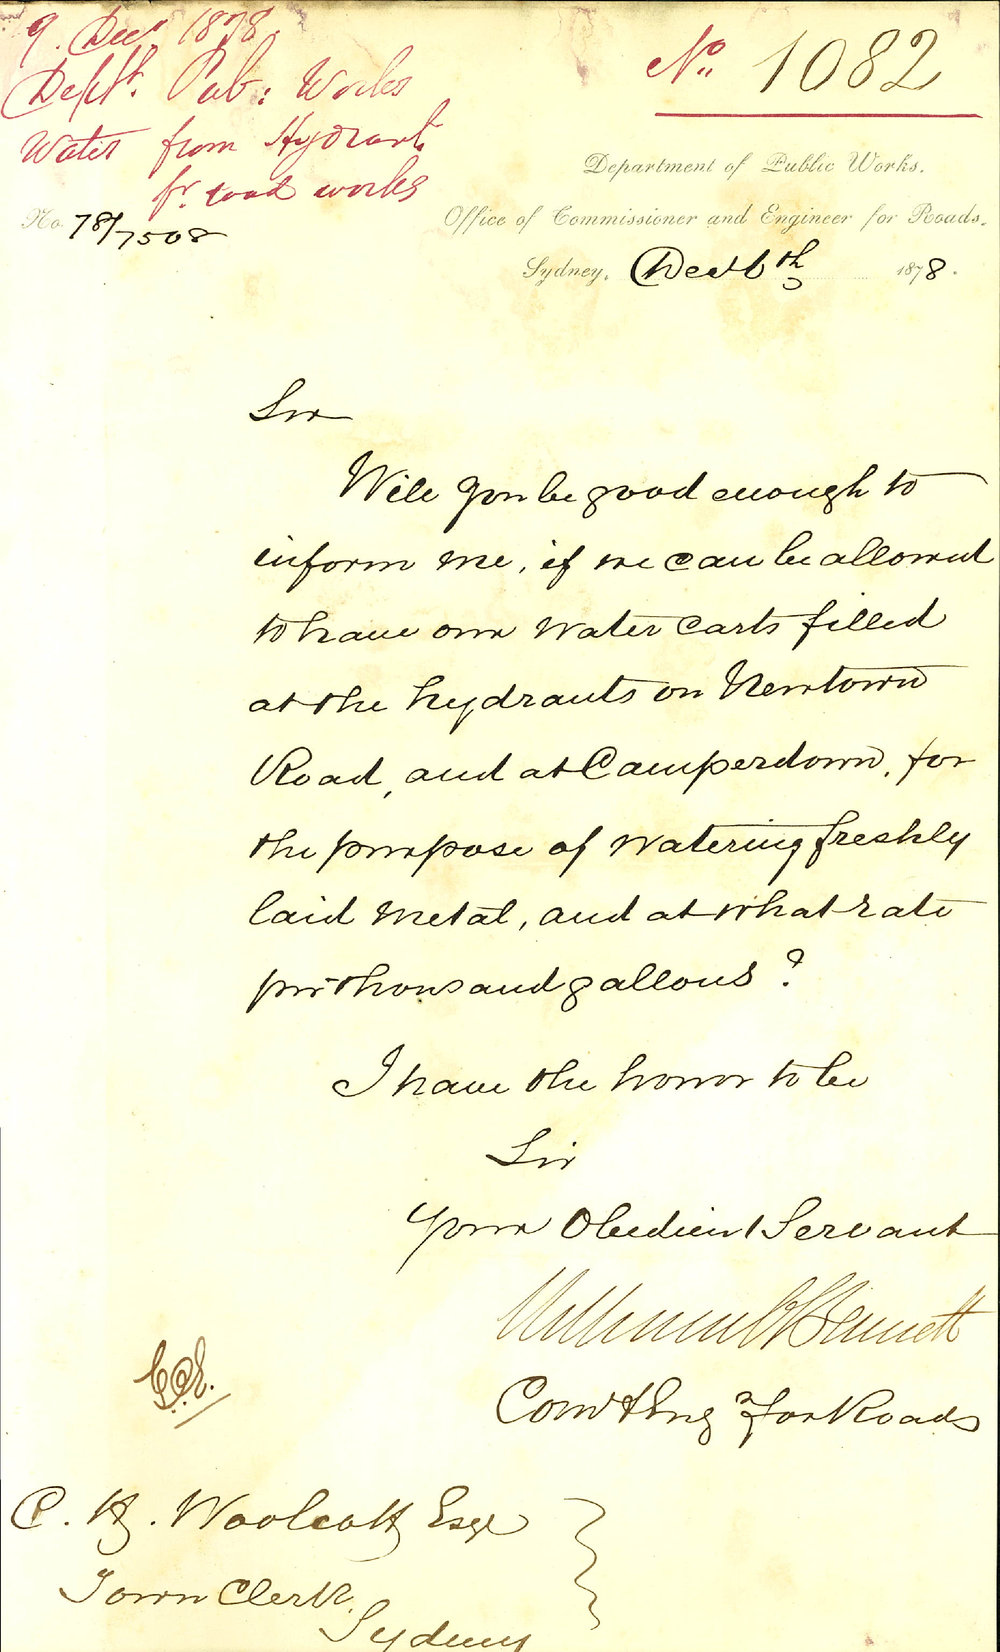 9. Decr 1878.
Deptt. Pub: Works
Water from Hydrants
fr. road works
No. 78/7508
No. 1082
Department of Public Works.
Office of Commissioner and Engineer for Roads.
Sydney, Dec 6th 1878.
Sir
Will you be good enough to
inform me, if we can be allowed
to have our water carts filled
at the hydrants on Newtown
Road, and at Camperdown, for
the purpose of watering freshly
laid metal, and at what rate
per thousand gallons?
I have the honor to be
Sir
Your Obedient Servant
William C Bennett
Comr & Engr for Roads
C. H. Woolcott Esqr
Town Clerk
Sydney